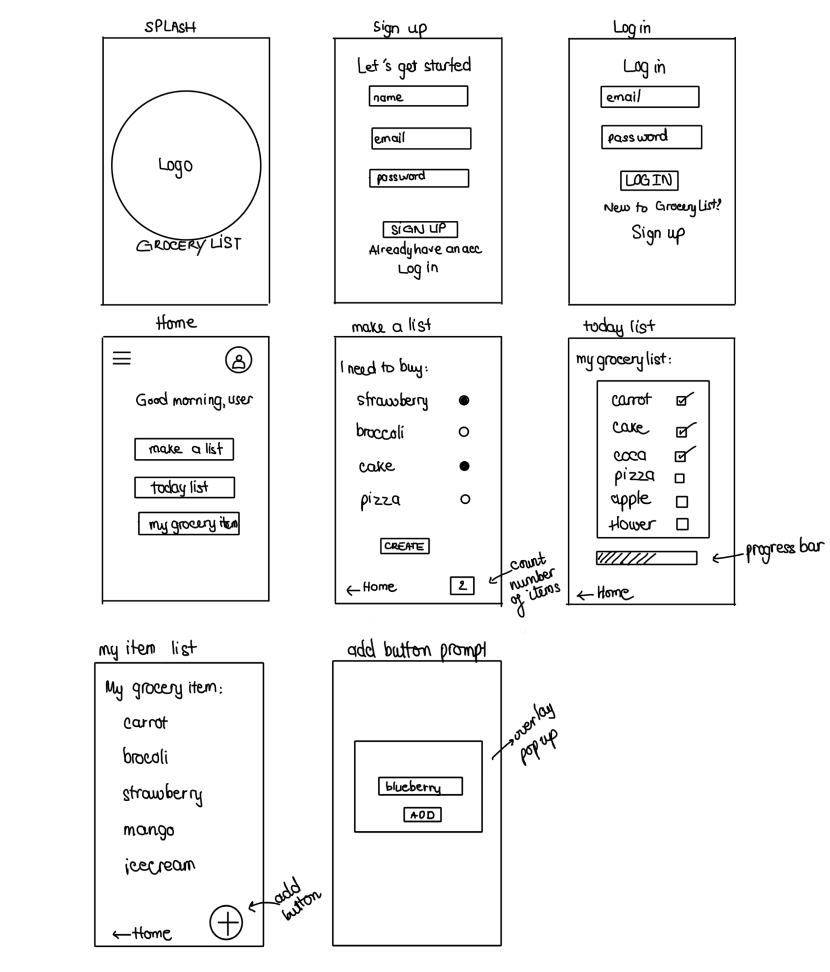 SPLASH
Logo
GROCERY LIST
Sign up
Let's get started
name
email
password
SIGN UP
Already have an acc
Log in
Log in
Log in
email
password
LOG IN
New to Grocery List?
Sign up
Home
Good morning, user
make a list
today list
my grocery item
make a list
I need to buy:
strawberry
broccoli
cake
pizza
CREATE
←Home
2
count
number
of items
today list
my grocery list:
carrot
cake
coca
pizza
apple
flower
progress bar
←Home
my item list
My grocery item:
carrot
brocoli
strawberry
mango
icecream
←Home
add
button
add button prompt
blueberry
ADD
overlay
pop up